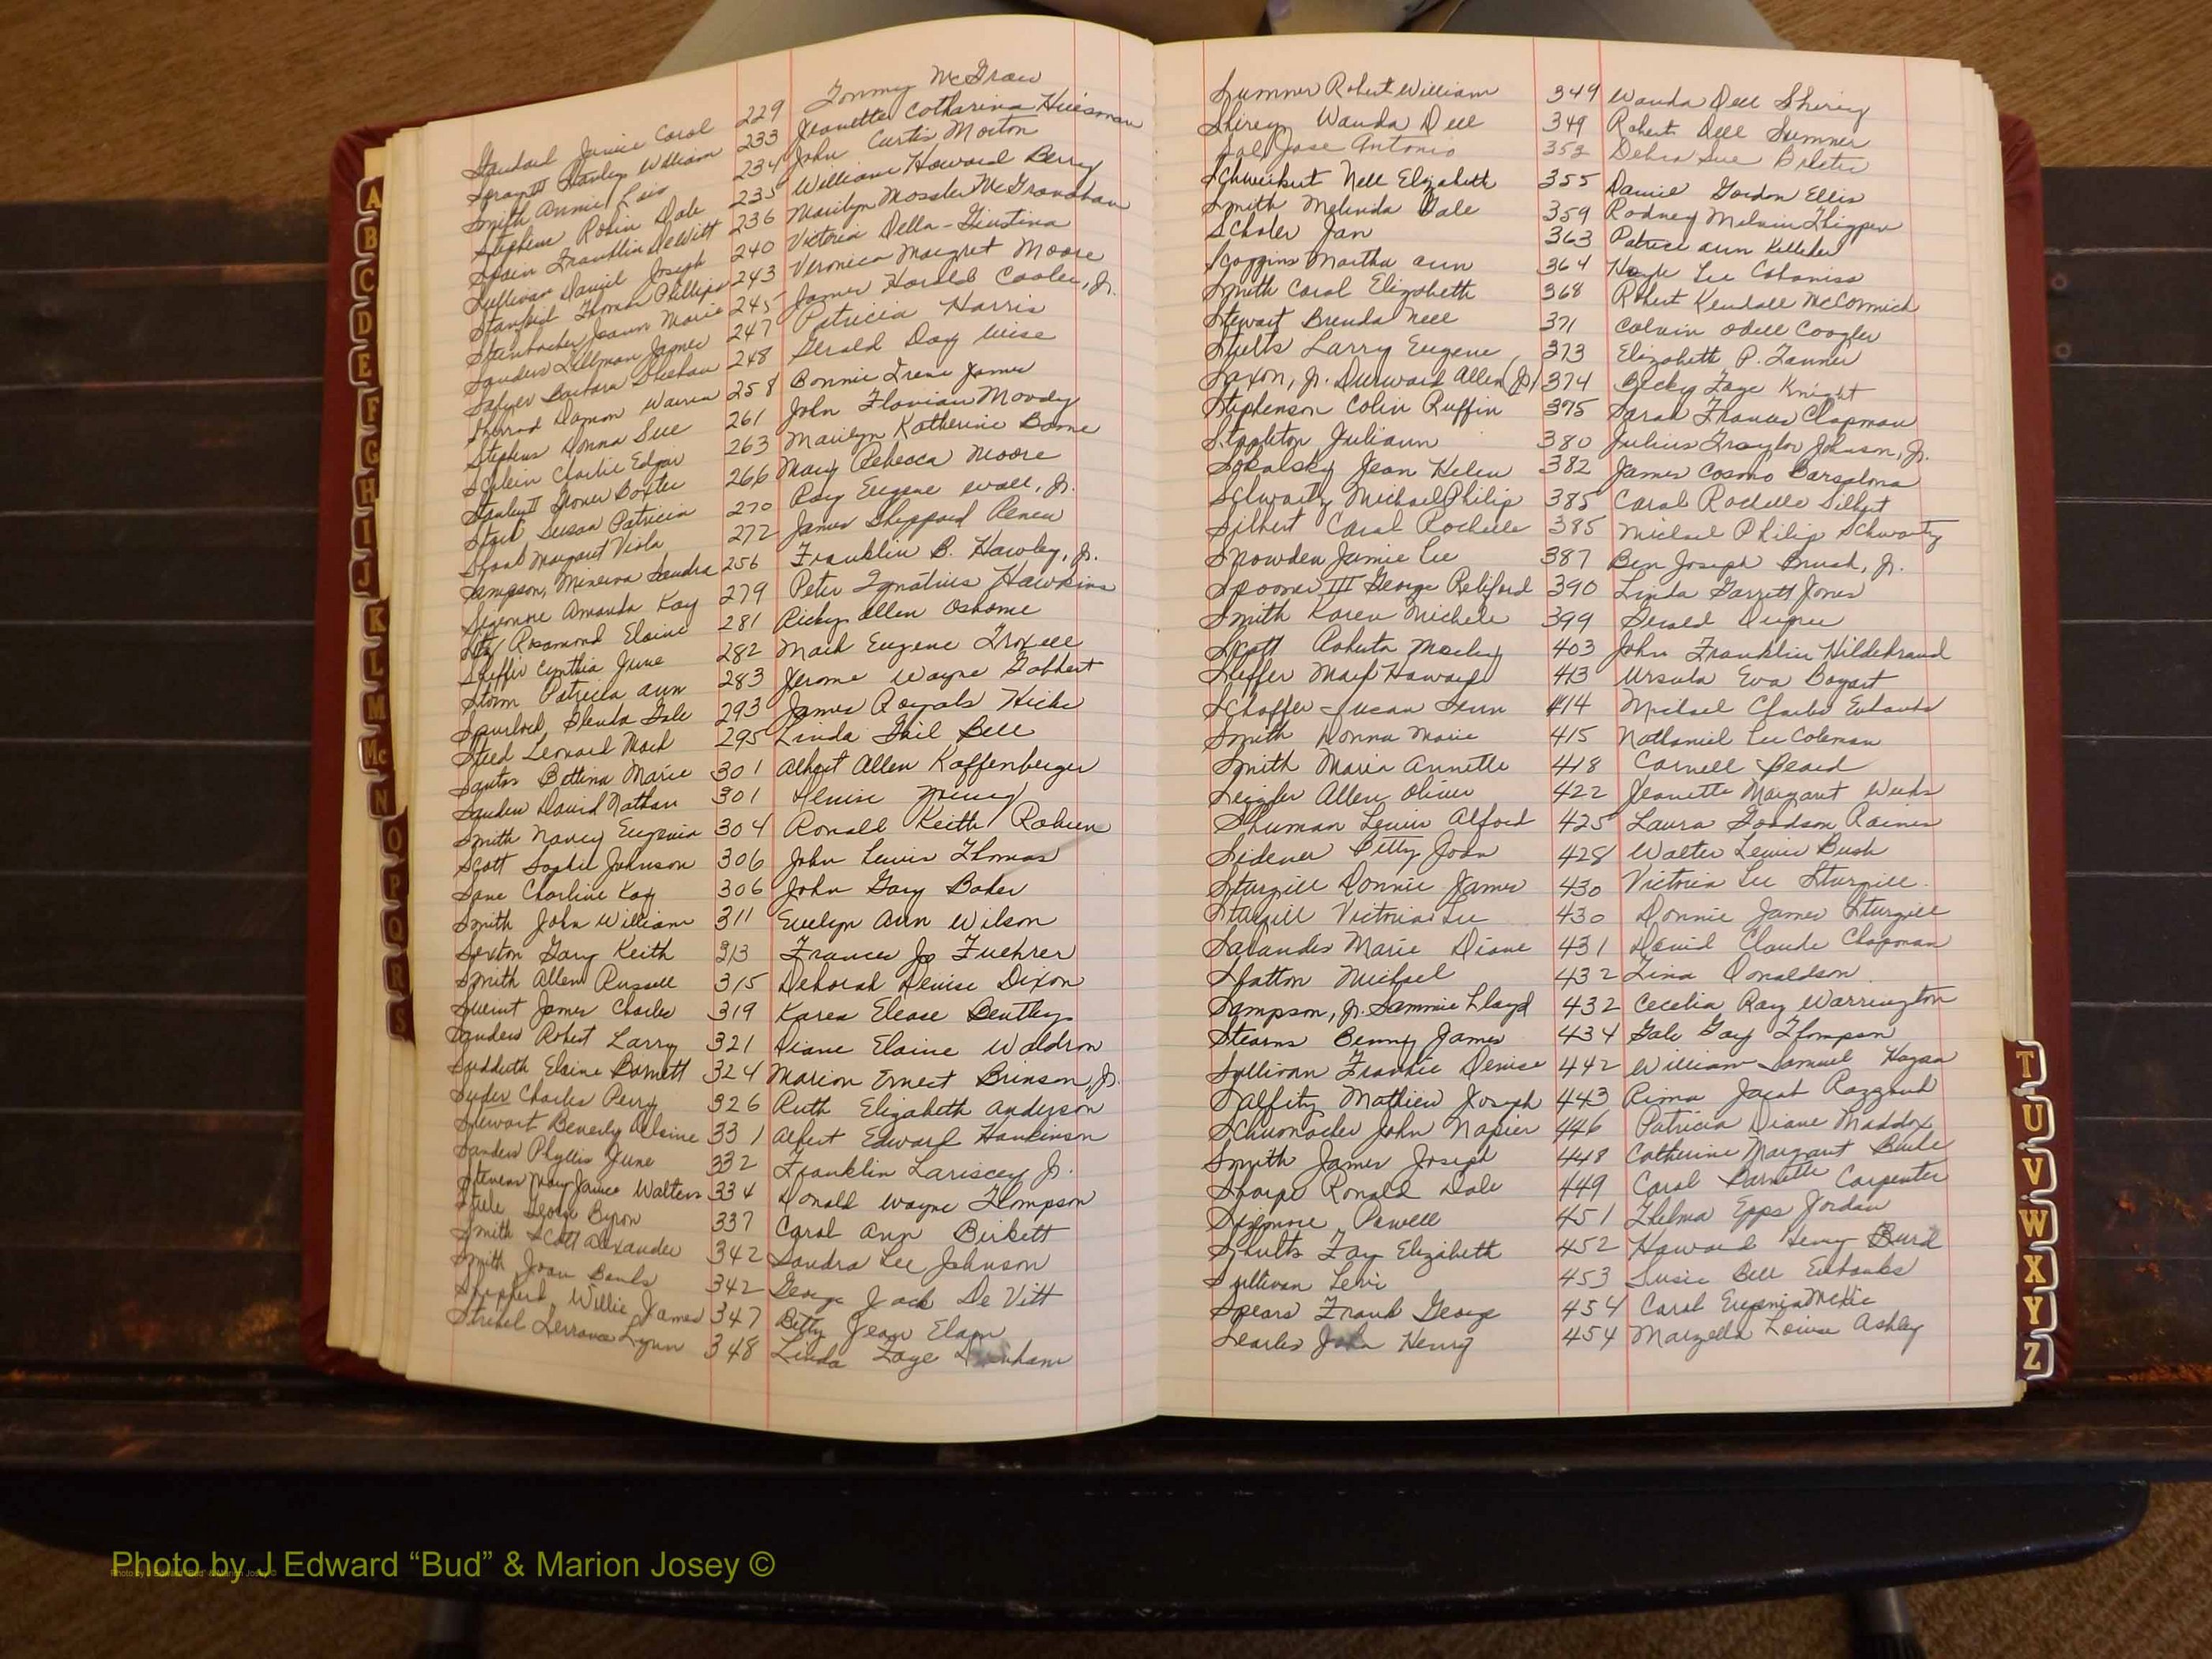 Tommy McGraw
Janice Carol 229 Jeanette Catharina Huisman
Stanley William 233 John Curtis Morton
Smith Annie Lois 234 William Howard Berry
Stephens Robin Dale 235 Marilyn Mossler McGranahan
Spain Franklin DeWitt 236 Victoria Della-Giustina
Sullivan Daniel Joseph 240 Veronica Margret Moore
Stanford Thomas Phillips 243 James Harold Cooler, Jr.
Steinbacher Joann Marie 245 Patricia Harris
Sanders Tillman James 247 Gerald Day Wise
Barbara 248 Bonnie Irene James
Sherrod Damon Warren 258 John Flavian Moody
Stephens Donna Sue 261 Marilyn Katherine Boone
Charlie Edgar 263 Mary Rebecca Moore
Stanley II Baxter 266 Ray Eugene Wall, Jr.
Susan Patricia 270 James Sheppard Renew
Margaret Viola 272 Franklin B. Hawley, Jr.
Sampson, Minerva Sandra 256 Peter Ignatius Hawkins
Amanda Kay 279 Ricky Allen Osborne
Rosamond Elaine 281 Mark Eugene Troxell
Cynthia June 282 Jerome Wayne Gabbert
Storm Patricia Ann 283 James Royals Hicks
Spurlock Glenda Gale 293 Linda Gail Bell
Steed Leonard Mack 295 Albert Allen Koffenberger
Santos Bettina Marie 301
David Nathan 301 Ronald Keith
Smith Nancy Eugenia 304 John Lewis Thomas
Scott Sophie Johnson 306 John Gary Baker
Sane Charline Kay 306 Evelyn Ann Wilson
Smith John William 311
Sexton Gary Keith 313 Frances Jo Fuehrer
Smith Allen Russell 315 Deborah Denise Dixon
James Charles 319 Karen Elease Bentley
Sanders Robert Larry 321 Diane Elaine Waldron
Sudduth Elaine Barnett 324 Marion Ernest Brinson, Jr.
Suder Charles Perry 326 Ruth Elizabeth Anderson
Stewart Beverly 331 Albert Edward Hankinson
Sanders Phyllis June 332 Franklin Lariscey Jr.
Stevens Mary Janice Walters 334 Donald Wayne Thompson
Steele George Byron 337 Carol Ann Birkett
Smith Scott Alexander 342 Sandra Lee Johnson
Smith Joan Banks 342 George Jack De Vitt
Shepherd, Willie James 347 Betty Jean Elam
Lynn 348 Linda Faye
Sumner Robert William 349 Wanda Dell Shirey
Shirey Wanda Dell 349 Robert Dell Sumner
Jose Antonio 352 Debra Sue
Schweikert Nell Elizabeth 355 Daniel Gordon Ellis
Smith Melinda Gale 359 Rodney Melvin Thigpen
Scholer Jan 363 Patrice Ann Kelleher
Scoggins Martha Ann 364 Hoyle Lee Cabaniss
Smith Carol Elizabeth 368 Robert Kendall McCormick
Stewart Brenda Nell 371 Calvin Odell Coogler
Stults Larry Eugene 373 Elizabeth P. Tanner
Saxon, Jr. Durward Allen (Jr) 374 Becky Faye Knight
Stephenson Colin Ruffin 375 Sarah Frances Clapman
Stapleton Juliann 380 Julius Traylor Johnson, Jr.
Sokalsky Jean Helen 382 James Cosmo Barsalona
Schwartz Michael Philip 385 Carol Rochelle Silbert
Silbert Carol Rochelle 385 Michael Philip Schwartz
Snowden Jamie Lee 387 Ben Joseph Brush, Jr.
Spooner III George Reliford 390 Linda Garrett Jones
Smith Karen Michele 399 Gerald Dupree
Scott Roberta 403 John Franklin Hildebrand
Steffer Mark Howard 413 Ursula Eva Bogart
Schaffer Susan Fern 414 Michael Charles Eubanks
Smith Donna Marie 415 Nathaniel Lee Coleman
Smith Maria Annette 418 Cornell Beard
Seigler Allen Oliver 422 Jeanette Margaret Weeks
Shuman Lewis Alford 425 Laura Goodson Raines
Sidener Betty Joan 428 Walter Lewis Bush
Sturgill Donnie James 430 Victoria Lee Sturgill
Sturgill Victoria Lee 430 Donnie James Sturgill
Sarandes Marie Diane 431 David Claude Chapman
Slatton Michael 432 Tina Donaldson
Sampson, Jr. Sammie Lloyd 432 Cecelia Ray Warrington
Stearns Benny James 434 Gale Gay Thompson
Sullivan Frankie Denise 442 William Samuel Hagan
Salfity Mathieu Joseph 443 Rima Jacob Razzouk
Schumacher John Napier 446 Patricia Diane Maddox
Smith James Joseph 448 Catherine Margaret
Sharpe Ronald Dale 449 Carol Barnette Carpenter
Sizemore Powell 451 Thelma Epps Jordan
Shults Fay Elizabeth 452 Howard Henry Burd
Sullivan Levi 453 Susie Bell Eubanks
Spears Frank George 454 Carol Eugenia McKie
Searles John Henry 454 Marzella Louise Ashley
A
B
C
D
E
F
G
H
I
J
K
L
M
Mc
N
O
P
Q
R
S
T
U
V
W
X
Y
Z
Photo by J Edward “Bud” & Marion Josey ©
Photo by J Edward "Bud" & Marion Josey ©